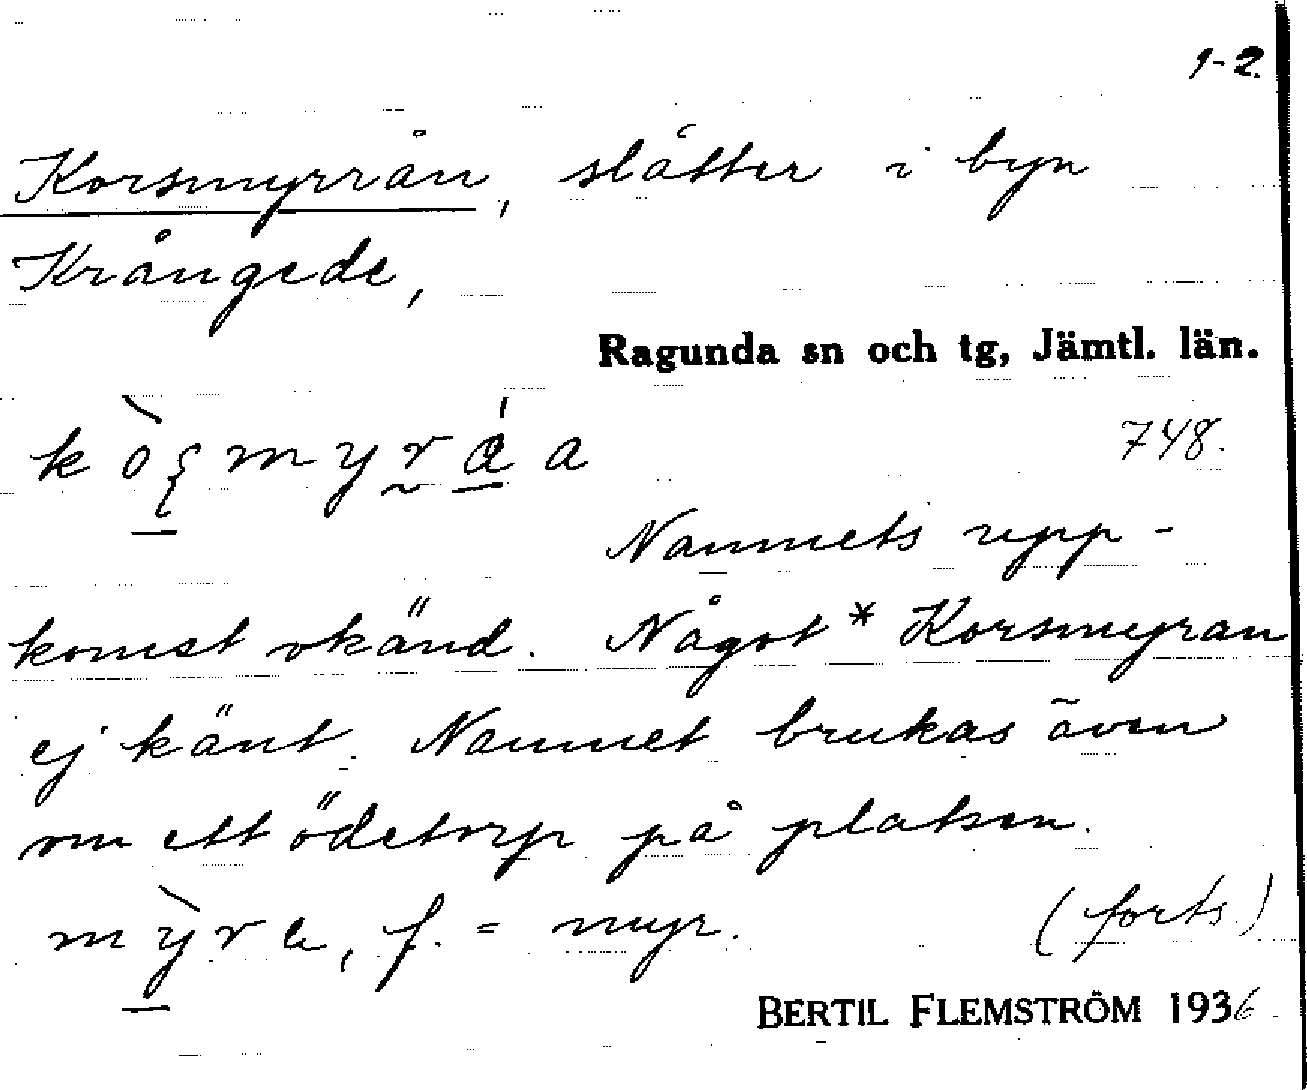 1-2.
Korsmyrrån, slåtter i byn
Krångede,
Ragunda sn och tg, Jämtl. län.
748.
Namnets upp-
komst okänd. Något * Korsmyran
ej känt. Namnet brukas även
om ett ödetorp på platsen.
f. = myr. (forts.)
BERTIL FLEMSTRÖM 1936